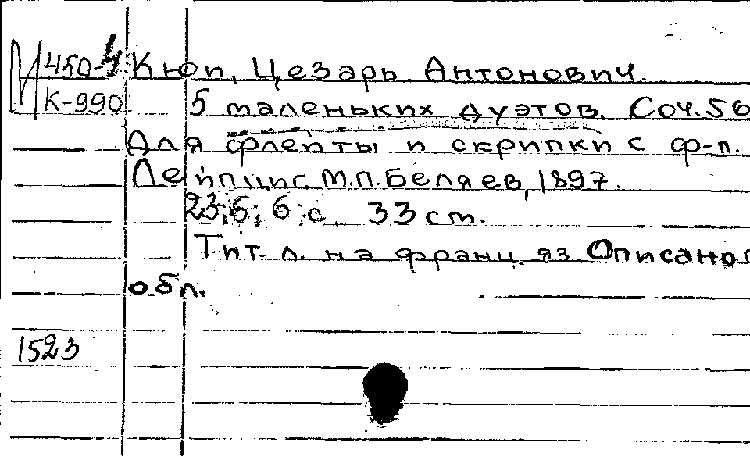 И 450-4 Кюи, Цезарь Антонович.
К-990 5 маленьких дуэтов. Соч. 56
Для флейты и скрипки с ф-п.
Лейпциг. М.П.Беляев, 1897.
23; 5; 6 с. 33 см.
Тит. л. на франц. яз. Описано
обл.
1523